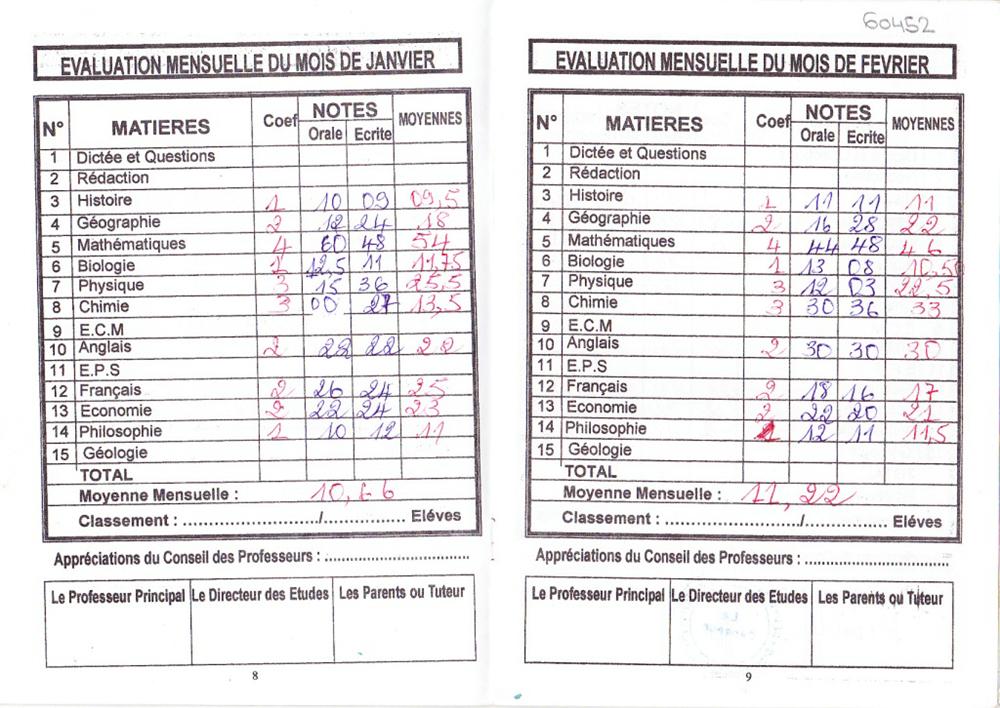 60452
EVALUATION MENSUELLE DU MOIS DE JANVIER
N° MATIERES Coef NOTES MOYENNES
Orale Ecrite
1 Dictée et Questions
2 Rédaction
3 Histoire 1 10 09 09,5
4 Géographie 2 12 24 18
5 Mathématiques 4 60 48 54
6 Biologie 1 12,5 11 11,75
7 Physique 3 15 36 25,5
8 Chimie 3 00 27 13,5
9 E.C.M
10 Anglais 2 22 22 22
11 E.P.S
12 Français 2 26 24 25
13 Economie 2 22 24 23
14 Philosophie 1 10 12 11
15 Géologie
TOTAL
Moyenne Mensuelle :
Classement : ........................../................ Eléves
Appréciations du Conseil des Professeurs : ................................
Le Professeur Principal Le Directeur des Etudes Les Parents ou Tuteur
8
EVALUATION MENSUELLE DU MOIS DE FEVRIER
N° MATIERES Coef NOTES MOYENNES
Orale Ecrite
1 Dictée et Questions
2 Rédaction
3 Histoire 1 11 11 11
4 Géographie 2 16 28 22
5 Mathématiques 4 44 48 46
6 Biologie 1 13 08 10,50
7 Physique 3 12 03 22,5
8 Chimie 3 30 36 33
9 E.C.M
10 Anglais 2 30 30 30
11 E.P.S
12 Français 2 18 16 17
13 Economie 2 22 20 21
14 Philosophie 1 12 11 11,5
15 Géologie
TOTAL
Moyenne Mensuelle : 11,22
Classement : ........................../................ Eléves
Appréciations du Conseil des Professeurs : ................................
Le Professeur Principal Le Directeur des Etudes Les Parents ou Tuteur
9